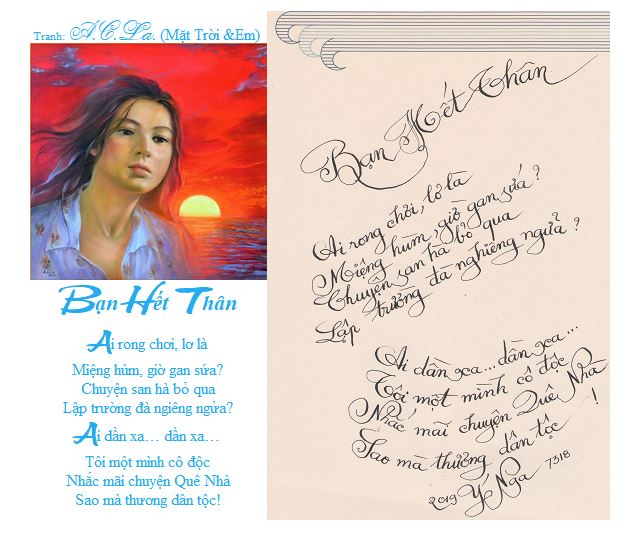 Tranh: A.C.La. (Mặt Trời &Em)
Bạn Hết Thân
Ai rong chơi, lơ là
Miệng hùm, giờ gan sứa?
Chuyện san hà bỏ qua
Lập trường đà ngiêng ngửa?
Ai dần xa… dần xa…
Tôi một mình cô độc
Nhắc mãi chuyện Quê Nhà
Sao mà thương dân tộc!
Bạn Hết Thân
Ai rong chơi, lơ là
Miệng hùm, giờ gan sứa?
Chuyện san hà bỏ qua
Lập trường đà nghiêng ngửa?
Ai dần xa... dần xa...
Tôi một mình cô độc
Nhắc mãi chuyện Quê Nhà
Sao mà thương dân tộc !
2019 Ý Nga 7318